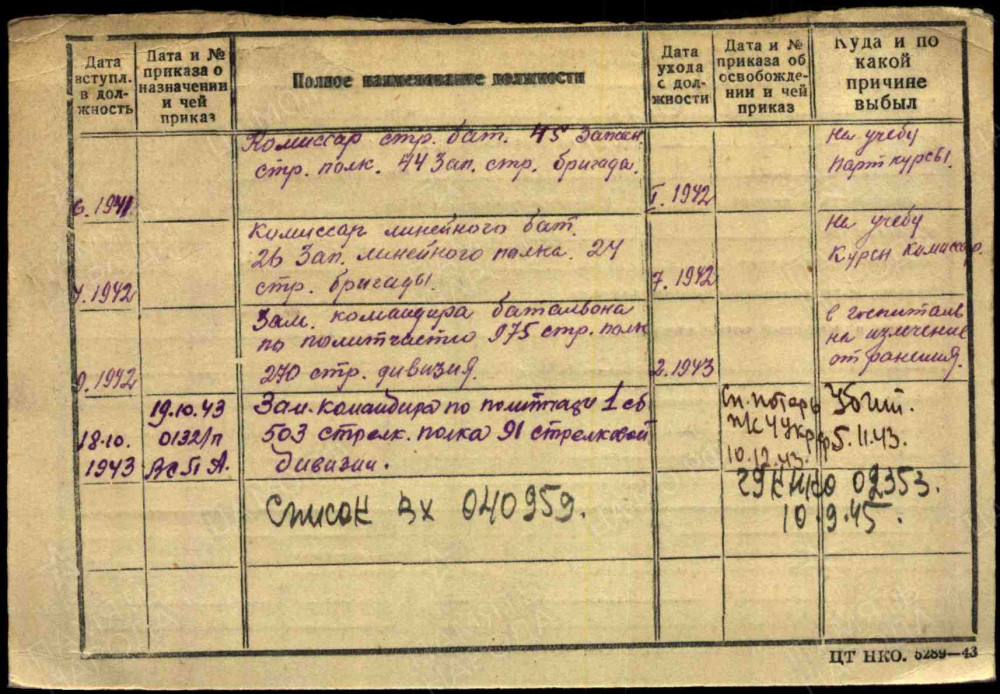 Дата вступл. в должность
Дата и № приказа о назначении и чей приказ
Полное наименование должности
Дата ухода с должности
Дата и № приказа об освобождении и чей приказ
Куда и по какой причине выбыл
Комиссар стр. бат. 45 Запасн.
стр. полк. 44 Зап. стр. бригада.
6.1941.
I.1942
На учебу
парткурсы.
Комиссар линейного бат.
26 Зап. линейного полка. 24
стр. бригады.
4.1942
7.1942
На учебу
Курсы Комиссар.
Зам. командира батальвона
по политчасти 975 стр. полк
270 стр. дивизия.
9.1942
2.1943
в госпиталь
на излечение
от ранения.
18.10.
1943
19.10.43
0132/п
Зам. командира по политчасти 1 сб
503 стрелк. полка 91 стрелковой
дивизии.
Сп. потерь
4 Укр. ф
10.12.43.
Убит.
5.11.43.
Список вх 040959.
ГУК НКО 02353.
10.9.45.
ЦТ НКО. 5289—43